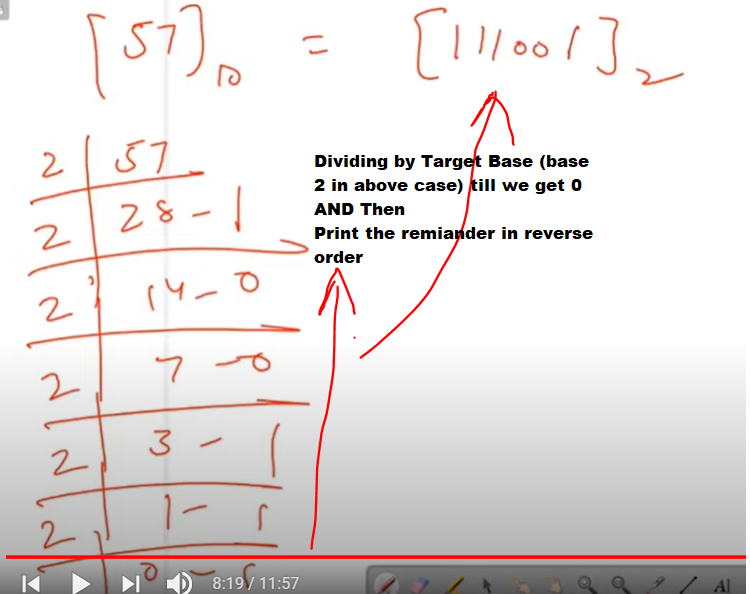 [57]10 = [111001]2
2 | 57
2 | 28 - 1
2 | 14 - 0
2 | 7 - 0
2 | 3 - 1
2 | 1 - 1
0 - 1
Dividing by Target Base (base
2 in above case) till we get 0
AND Then
Print the remiander in reverse
order
8:19 / 11:57
AI